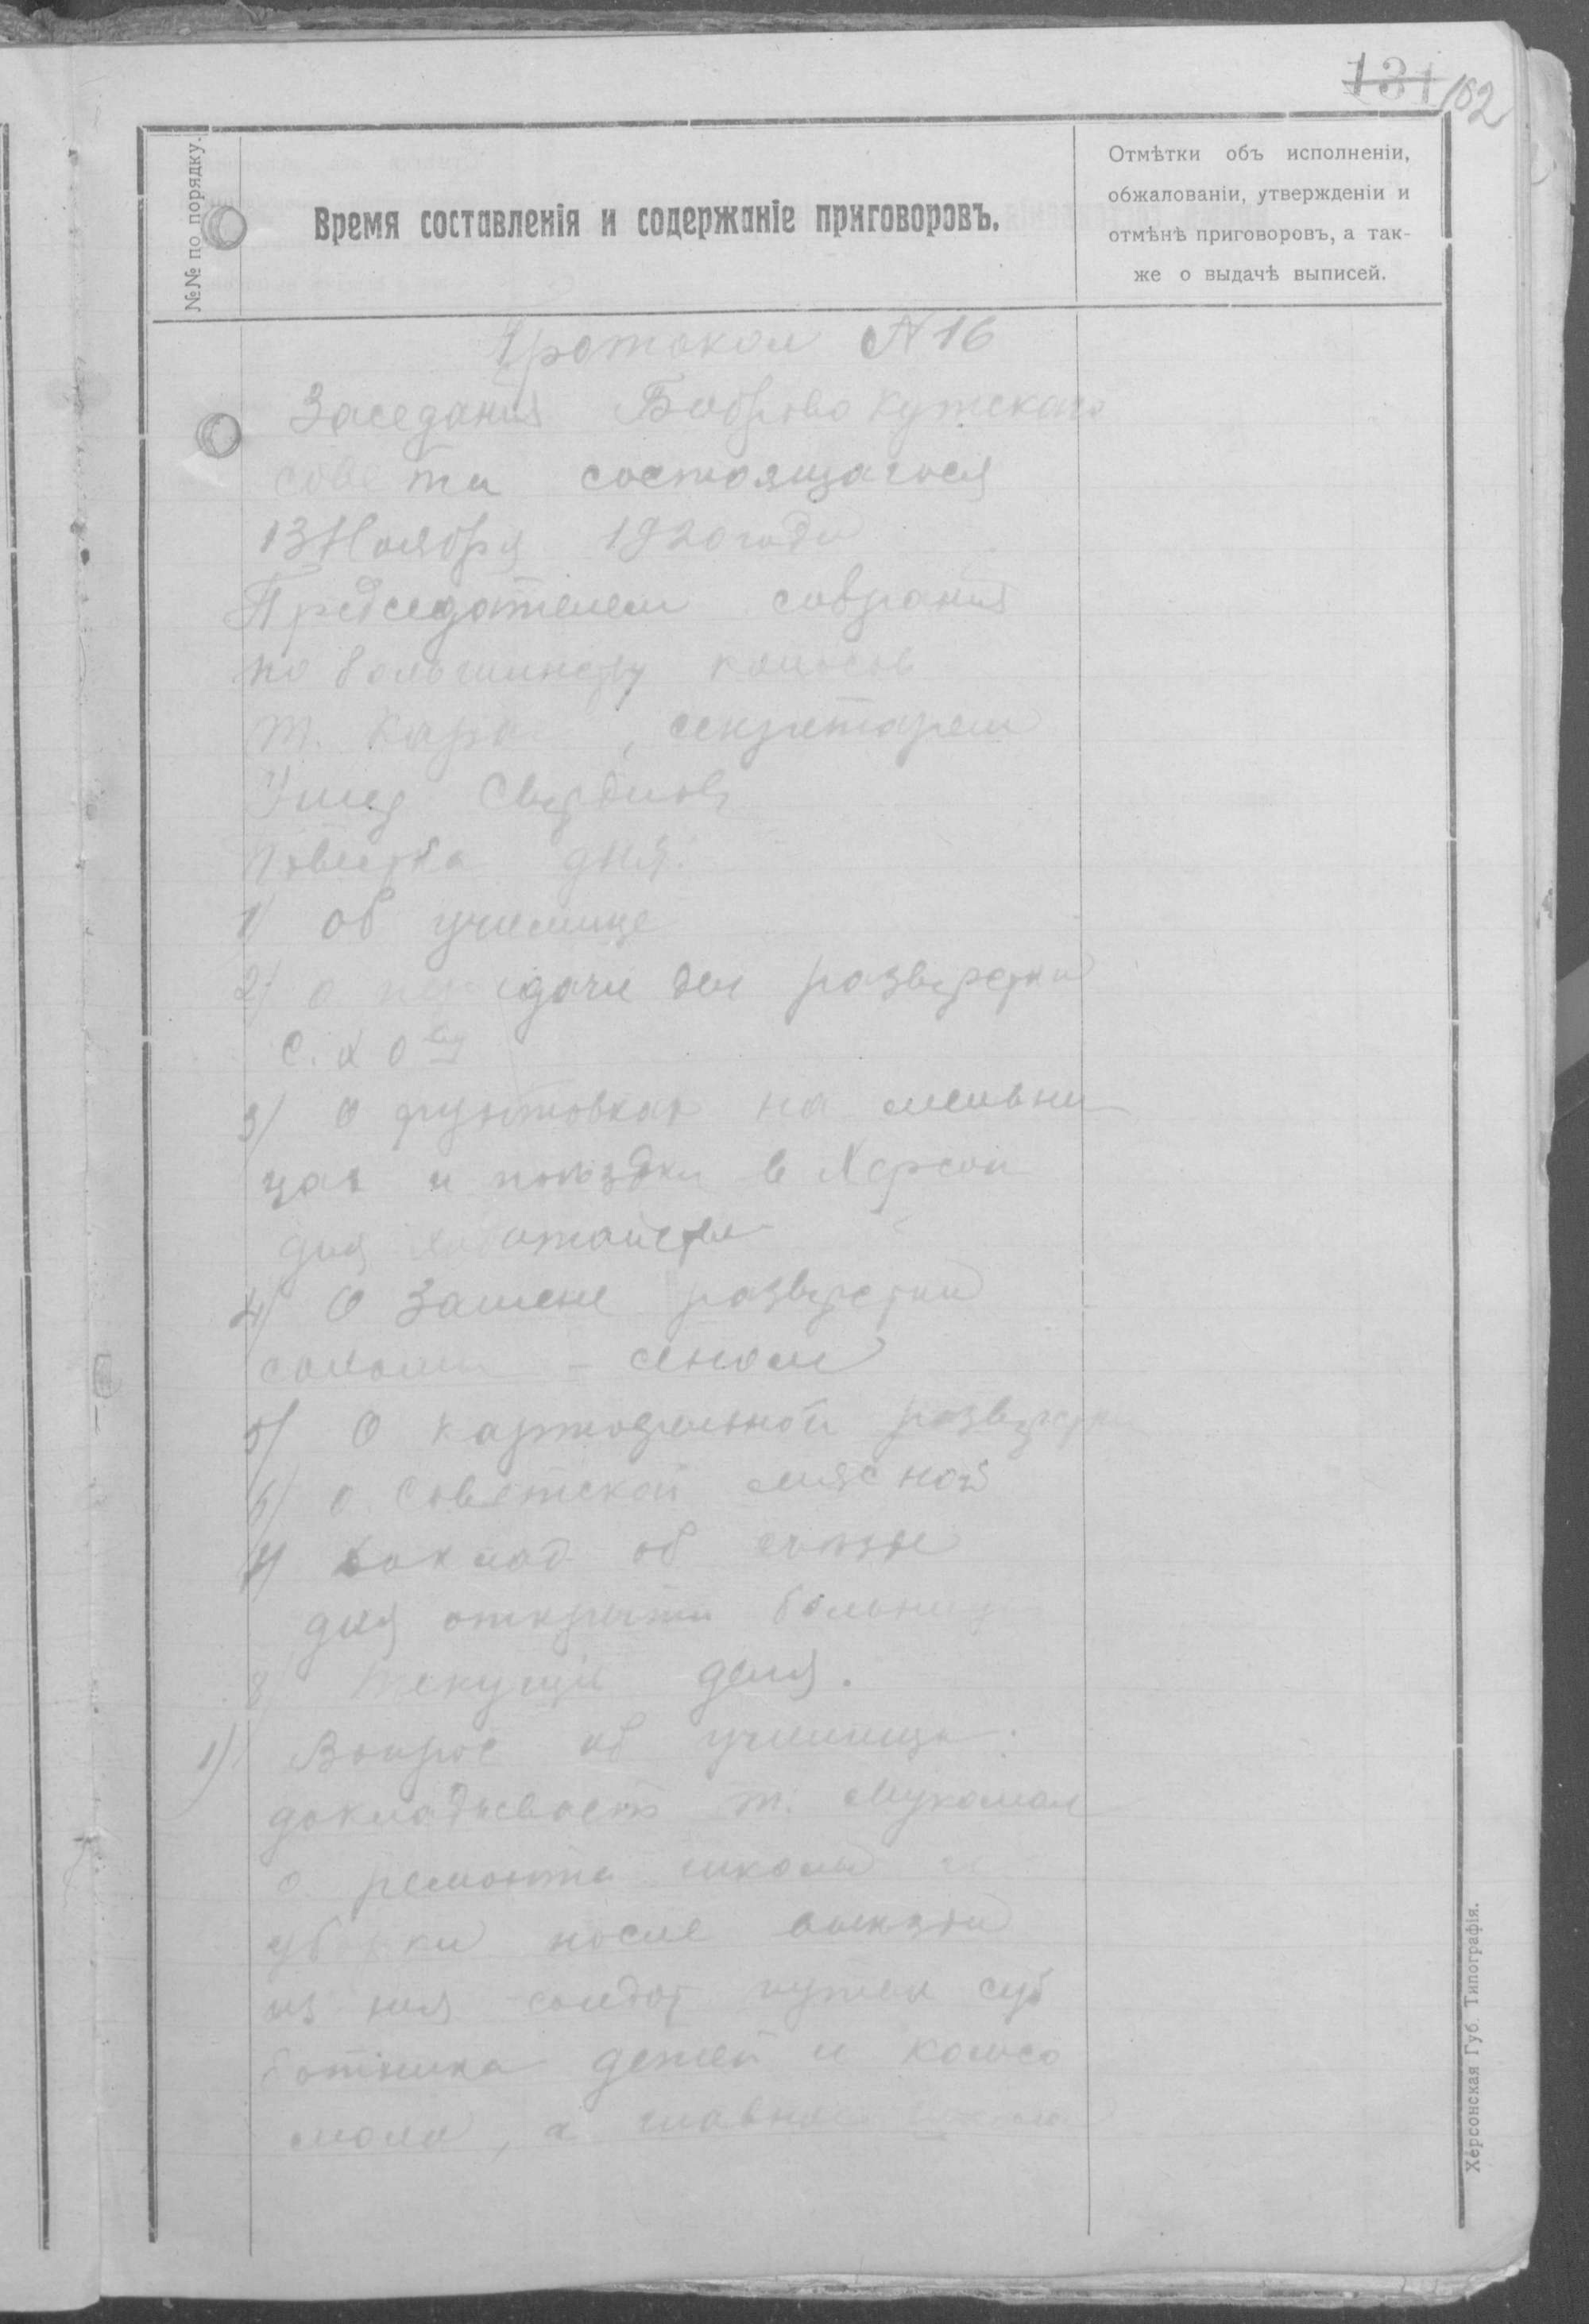 131 162
№№ по порядку.
Время составленія и содержаніе приговоровъ.
Отмѣтки объ исполненіи,
обжалованіи, утвержденіи и
отмѣнѣ приговоровъ, а так-
же о выдачѣ выписей.
Протокол N 16
Заседания Боброво Кутскаго
совета состоящагося
13 Ноября 1920 года
Председателем собрания
по большинству голосов
т. Кара , секретарем
Повестка дня:
1) об училище
2) о передачи дел разверстки
С. Х О
3) О фунтовках на мельни
цах и поездки в Херсон
для ходатайства
4) О Замене разверстки
соломы - сеном
5) О картофельной разверстки
6) о Советской мясной
7) Доклад об съезде
для открыти больниц
8 текущие дела.
1) Вопрос об училище.
докладывает т.
о ремонте школы
после
из нея солдат путем суб
ботника детей и комсо
мола, а главное
Херсонская Губ. Типографія.